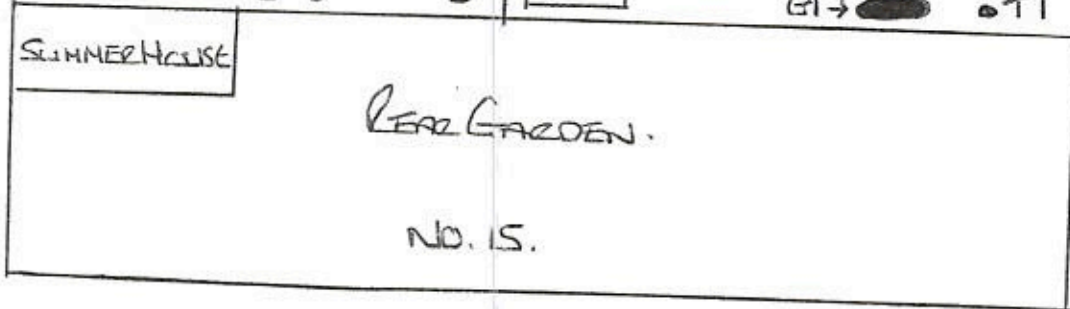 G1→ T1
SUMMERHOUSE
REAR GARDEN.
NO. 15.